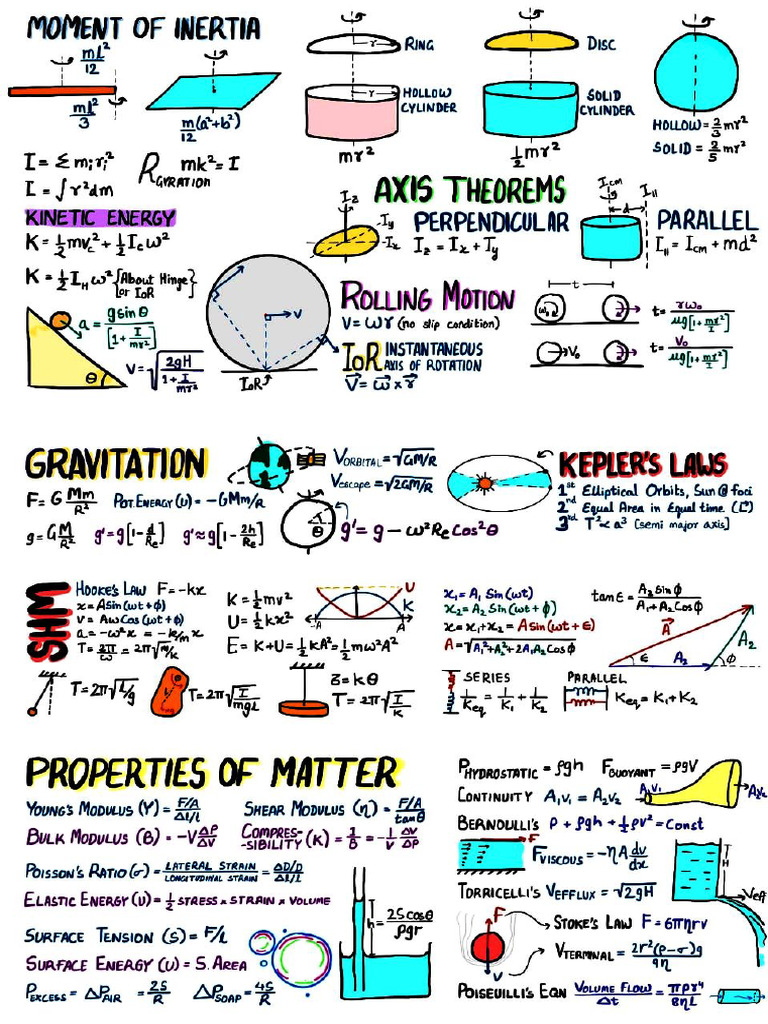 MOMENT OF INERTIA
ml²/12
ml²/3
m/12(a²+b²)
r
RING
r
HOLLOW CYLINDER
mr²
DISC
SOLID CYLINDER
½mr²
HOLLOW = 2/3 mr²
SOLID = 2/5 mr²
I = Σ mᵢrᵢ²
I = ∫ r²dm
RGYRATION mk² = I
AXIS THEOREMS
Iz
Iy
Ix
PERPENDICULAR
Iz = Ix + Iy
Icm
I||
d
PARALLEL
I|| = Icm + md²
KINETIC ENERGY
K = ½mvc² + ½Icω²
K = ½IHω² {About Hinge or IOR}
a = gsinθ/[1 + I/mr²]
v = √(2gH/(1 + I/mr²))
θ
v
IOR
ROLLING MOTION
v = ωr (no slip condition)
IOR INSTANTANEOUS AXIS OF ROTATION
V⃗ = ω⃗ × r⃗
t
t = rω₀/μg[1+mr²/I]
V₀
t = V₀/μg[1+mr²/I]
GRAVITATION
F = G Mm/R² POT. ENERGY (U) = -GMm/R
g = GM/R² g' = g[1 - d/Re] g' ≈ g[1 - 2h/Re]
VORBITAL = √GM/R
Vescape = √2GM/R
r
θ
g' = g - ω²ReCos²θ
KEPLER'S LAWS
1st Elliptical Orbits, Sun @ foci
2nd Equal Area in Equal time (L⃗)
3rd T² ∝ a³ [semi major axis]
SHM
HOOKE'S LAW F = -kx
x = ASin(ωt+ϕ)
v = AωCos(ωt+ϕ)
a = -ω²x = -k/m x
T = 2π/ω = 2π√m/k
K = ½mv²
U = ½kx²
E = K+U = ½kA² = ½mω²A²
U
K
-A
A
x₁ = A₁ Sin(ωt)
x₂ = A₂ Sin(ωt+ϕ)
x = x₁+x₂ = A Sin(ωt+ϵ)
A = √A₁²+A₂²+2A₁A₂Cosϕ
tanϵ = A₂Sinϕ/A₁+A₂Cosϕ
A⃗
A₂
ϵ
A₂
ϕ
T = 2π√l/g
T = 2π√I/mgl
τ = kθ
T = 2π√I/K
SERIES
1/Keq = 1/K₁ + 1/K₂
PARALLEL
Keq = K₁ + K₂
PROPERTIES OF MATTER
YOUNG'S MODULUS (Y) = F/A/Δl/l SHEAR MODULUS (η) = F/A/tanθ
BULK MODULUS (B) = -V ΔP/ΔV COMPRESSIBILITY (K) = 1/B = -1/V ΔV/ΔP
POISSON'S RATIO (σ) = LATERAL STRAIN/LONGITUDINAL STRAIN = ΔD/D/Δl/l
ELASTIC ENERGY (U) = ½ STRESS × STRAIN × VOLUME
SURFACE TENSION (S) = F/l
SURFACE ENERGY (U) = S. AREA
PEXCESS = ΔPAIR = 2S/R ΔPSOAP = 4S/R
h = 2Scosθ/ρgr
PHYDROSTATIC = ρgh FBUOYANT = ρgV
CONTINUITY A₁V₁ = A₂V₂
A₁V₁
A₂V₂
BERNOULLI'S P + ρgh + ½ρV² = Const
F
FVISCOUS = -ηA dv/dx
TORRICELLI'S VEFFLUX = √2gH
H
Veff
F
V
STOKE'S LAW F = 6πηrv
VTERMINAL = 2r²(ρ-σ)g/9η
POISEUILLI'S EQN VOLUME FLOW/Δt = πpr⁴/8ηl